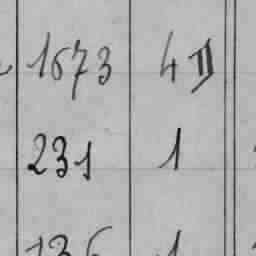 1673 4 II
231 1
136 1